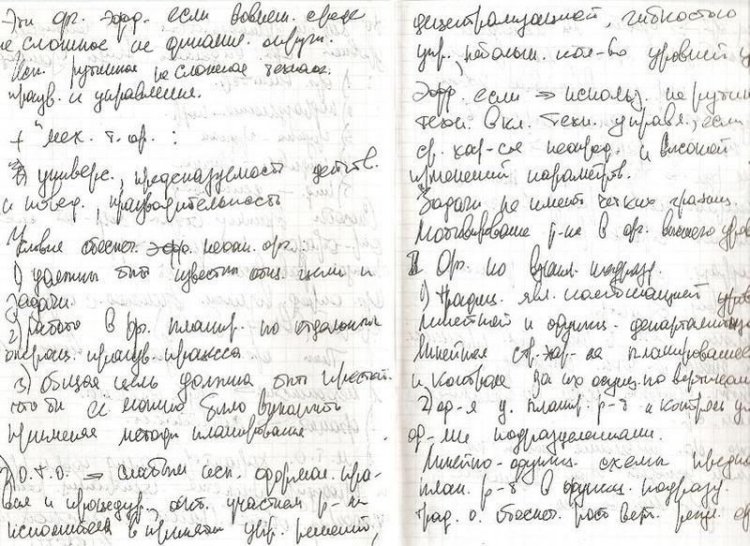 Эти орг. эфф. если во внеш. среде
не сложное не динамич. окруж.
Исп. рутинное не сложная технол.
произв. и управления.
+ "мех. т. ор. :
универс., предсказуемость действ.
и производительность
Условия обеспеч. эфф. механ. орг:
1) должны быть известны общ. цели и
задачи
2) работа в ор. планир. по отдельным
операц. произв. процесса
3) общая цель должна быть простой
что бы её можно было выполнить
применяя методы планирования
2) О.т.о. ⇒ слабым исп. формал. пра-
вил и процедур, акт. участием р-ка
исполнителя в принятии упр. решений,
децентрализацией, гибкостью
упр., небольш. кол-во уровней у
Эфф. если ⇒ использ. не рутин
техн. вкл. техн. управл., если
ср. хар-ся неопред. и высокой
изменений параметров.
Задачи не имеют четких границ.
Мотивирование р-ка в ор. высшего уров
II Ор. по взаим. подразд.
1) традиц. явл. комбинацией
линейной и функц. департаментиз
Линейная стр. хар-ся планированием
и контроля за по вертикали
2) ор-я у. планир. р-т и контрол у
ор-ми подразделениями.
Линейно-функц. схемы
план. р-т в функц. подразд.
трад. о. обеспеч. рост верт.